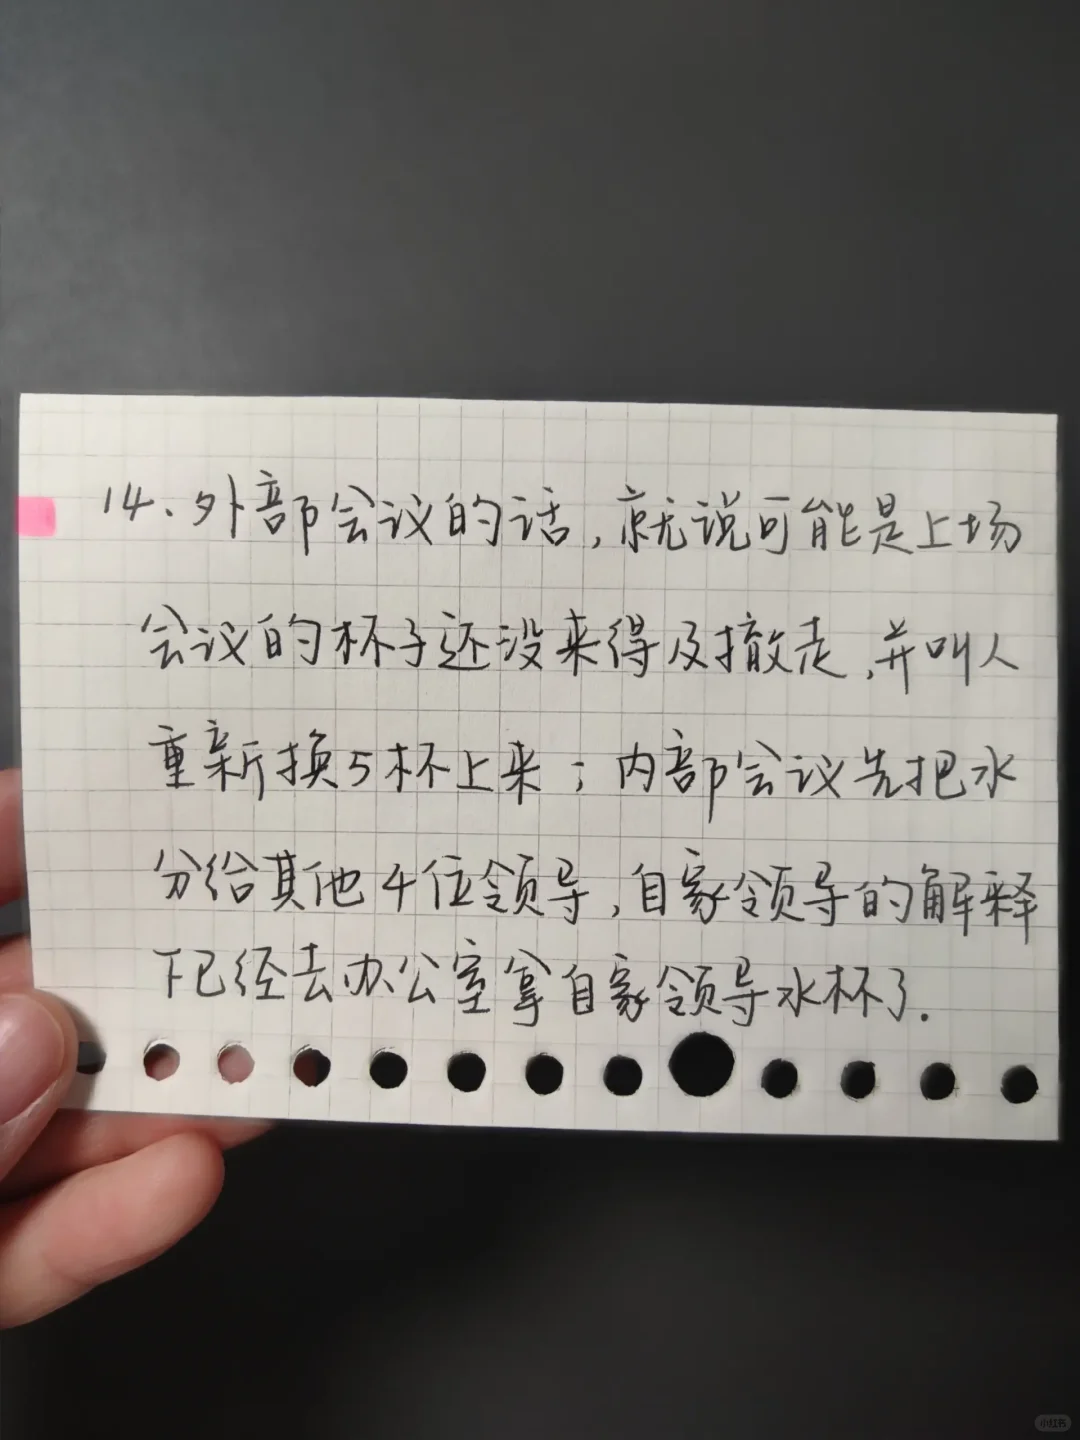 14、外部会议的话,就说可能是上场
会议的杯子还没来得及撤走,并叫人
重新换5杯上来;内部会议先把水
分给其他4位领导,自家领导的解释
下已经去办公室拿自家领导水杯了.
小红书